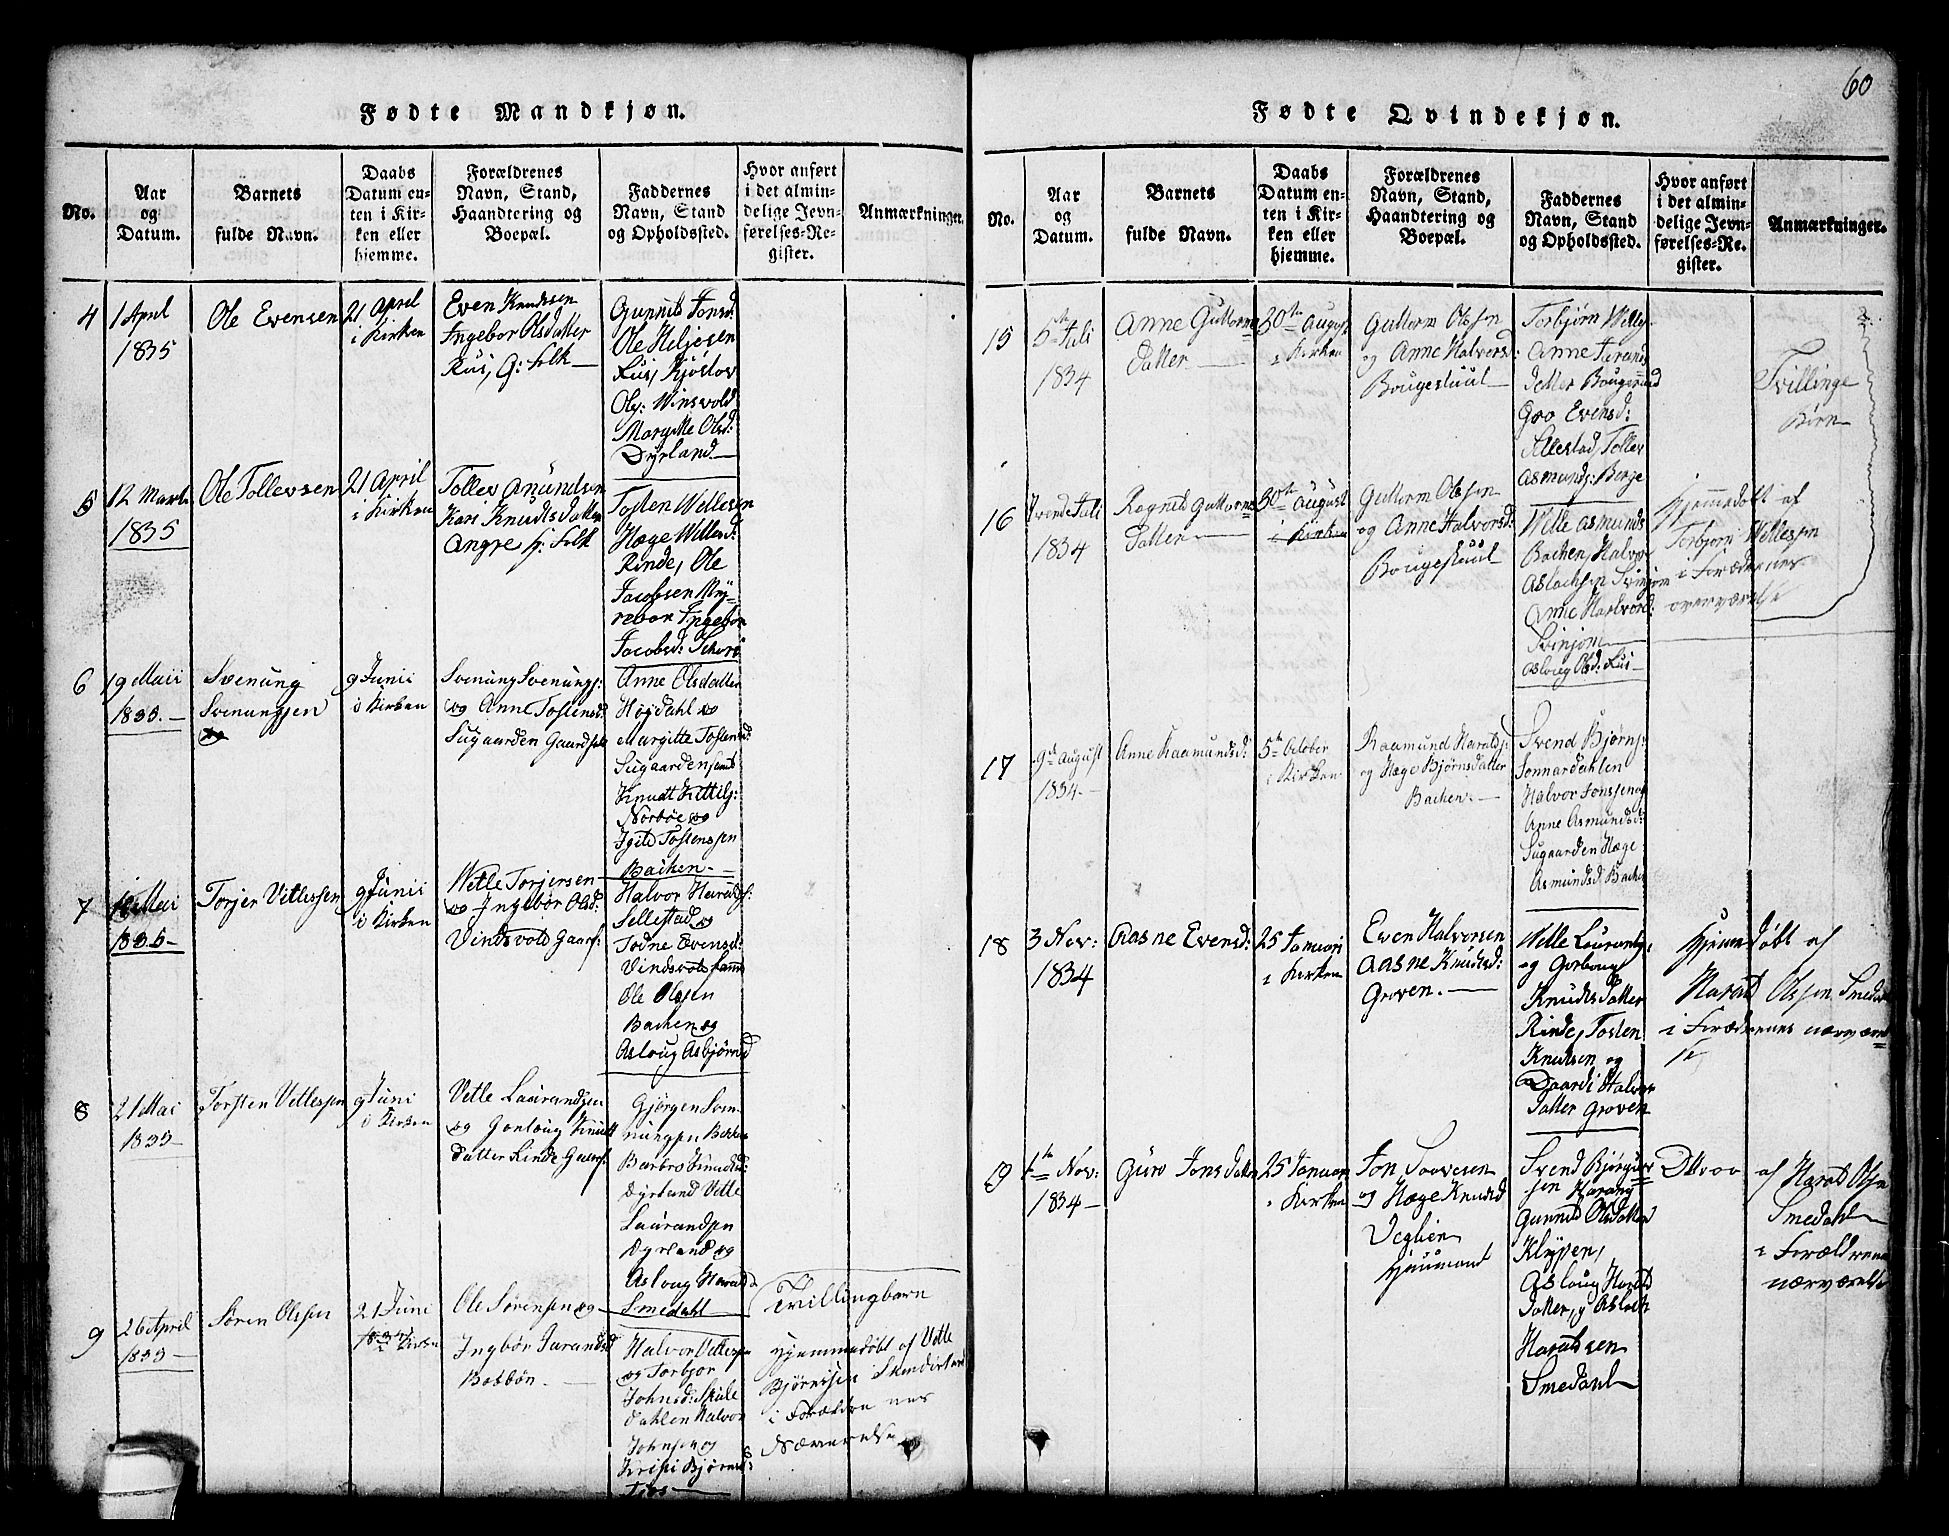 60
Fødte Mandkjøn.
No.
Aar
og
Datum.
Barnets
fulde Navn.
Daabs
Datum en-
ten i Kir-
ken eller
hjemme.
Forældrenes
Navn, Stand,
Haandtering og
Boepæl.
Faddernes
Navn, Stand
og Opholdssted.
Hvor anført
i det almin-
delige Jevn-
førelses-Re-
gister.
Anmærkninger.
4
1 April
1835
Ole Evensen
21 April
i Kirken
Even Knudsen
Ingebor Olsdatter
Riis, G: Folk
Gunnild Jonsd:
Ole Heljesen
Riis, Kjøstov
Oly: Winsvold
Margitte Olsd:
Dyrland
5
12 Marts
1835
Ole Tollevsen
21 April
i Kirken
Tollev Amundsen
Kari Knudtsdatter
Angre G: Folk
Tosten Wettesen
Hæge Wettesd:
Rinde, Ole
Jacobsen My-
rebøn Ingebør
Jacobsd:
6
19 Maii
1835.
Svenung
Svenungsen
9 Junii
i Kirken
Svenung Svenungs:
og Anne Tostensd:
Sugaarden Gaardfolk
Anne Olsdatter
Højdahl og
Margitte Tostensd:
Sugaarden samt
Knudt Kittils:
Norbøe og
Tostensen
Bachen
7
Maii
1835
Torjer Vetlessen
9 Junii
i Kirken
Wetle Torjersen
og Ingebør Olsd:
Vindsvold Gaarf:
Halvor Haralds:
Sellestad og
Evensd:
Vindsvold samt
Ole Olsen
Bachen og
Asloug Asbjørnsd
8
21 Mai
1835
Torsten Vetlessen
9 Juni
i Kirken
Vetle Laurandsen
og Gonloug Knudt
datter Rinde Gaarf:
Gjørgen Sven-
nungsen Bekken
Barbro Knudsd:
Dyrland Vetle
Laurandsen
Dyrland og
Asloug Haraldsd
Smedahl
9
26 April
1835
Søren Olssen
21 Juni
1835
i Kirken
Ole Sørensen og
Ingbør Jarandsd
Bobbøn.
Halvor Vetlesen
og Torbjør
Johnsd: Sküle
dahlen Halvor
Johnsen og
Bjørnsd:
Tvillingbarn
Hjemmedøbt af Vetle
Bjørnssen
i Forældrenes
Nærverelse
Fødte Qvindekjøn.
No.
Aar
og
Datum.
Barnets
fulde Navn.
Daabs
Datum en-
ten i Kir-
ken eller
hjemme.
Forældrenes
Navn, Stand,
Haandtering og
Boepæl.
Faddernes
Navn, Stand
og Opholdssted.
Hvor anført
i det almin-
delige Jevn-
førelses-Re-
gister.
Anmærkninger.
15
Juli
1834
Anne Guttorms
Datter
30te August
i Kirken
Guttorm Olssen
og Anne Halvorsd:
Bougestuul
Torbjørn Wetles
Anne Jarands
Datter Bougestuul
Gro Evensd:
Sellestad, Tollev
Asmunds: Berge
Tvillinge
Børn
16
Juli
1834
Ragnild Guttorms
Datter
30te August
i Kirken
Guttorm Olssen
og Anne Halvorsd:
Bougestuul
Wetle Asmunds
Bachen, Halvor
Aslachsen Svinjom
Anne Halvord:
Svinjom
Asloug Olsd: Riis
Hjemmedøbt af
Torbjørn Wetlesen
i Forældrenes
overværelse
17
9de August
1834
Anne Raamundsd:
5te October
i Kirken
Raamund Haralds:
og Hæge Bjørnsdatter
Bachen.
Svend Bjørns:
Sonnardahlen
Halvor Jonssen og
Anne Asmundsd:
Sugaarden Hæge
Asmundsd Bachen
18
3 Nov:
1834
Aasne Evensd:
25 Januari
i Kirken
Even Halvorsen
Aasne Knudsd:
Groven.
Wetle Laurants:
og Gonloug
Knudts Datter
Rinde, Tosten
Knudsen og
Halvors
Datter Groven
Hjemmedøbt af
Harald Olssen Smedahl
i Forældrenes nærværelse
19
1te Nov:
1834
Guro Jonsdatter
25 Januari
i Kirken
Jon Taavesen
og Hæge Knudsd
Veglien
Huusmand
Svend Bjørgu-
sen Haraug
Gunnild Olsdatter
Klypen,
Asloug Harald
Datter, og Aslach
Haraldsen
Smedahl
af Harald Olsen
Smedahl
i Forældrenes
nærværelse